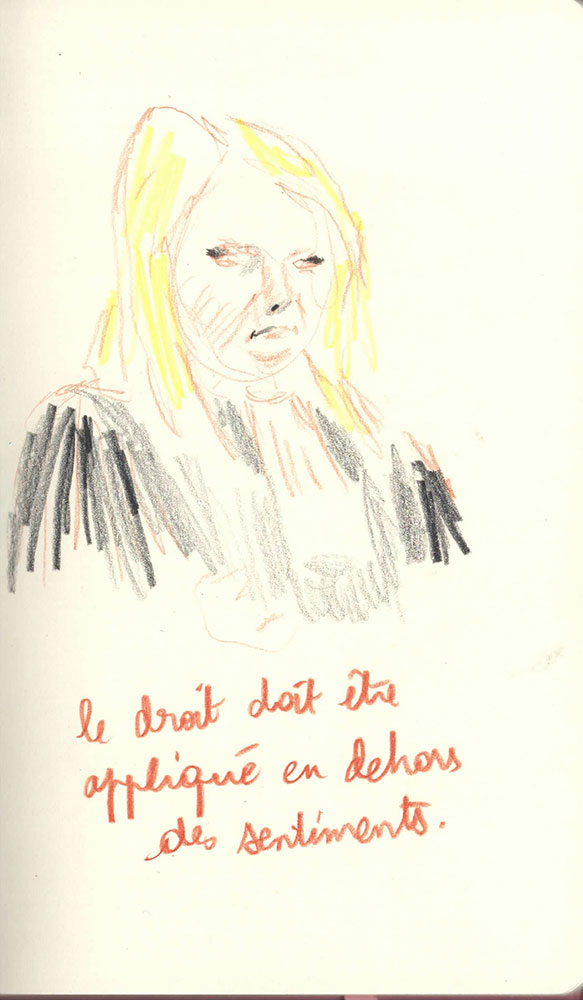 le droit doit être
appliqué en dehors
des sentiments.